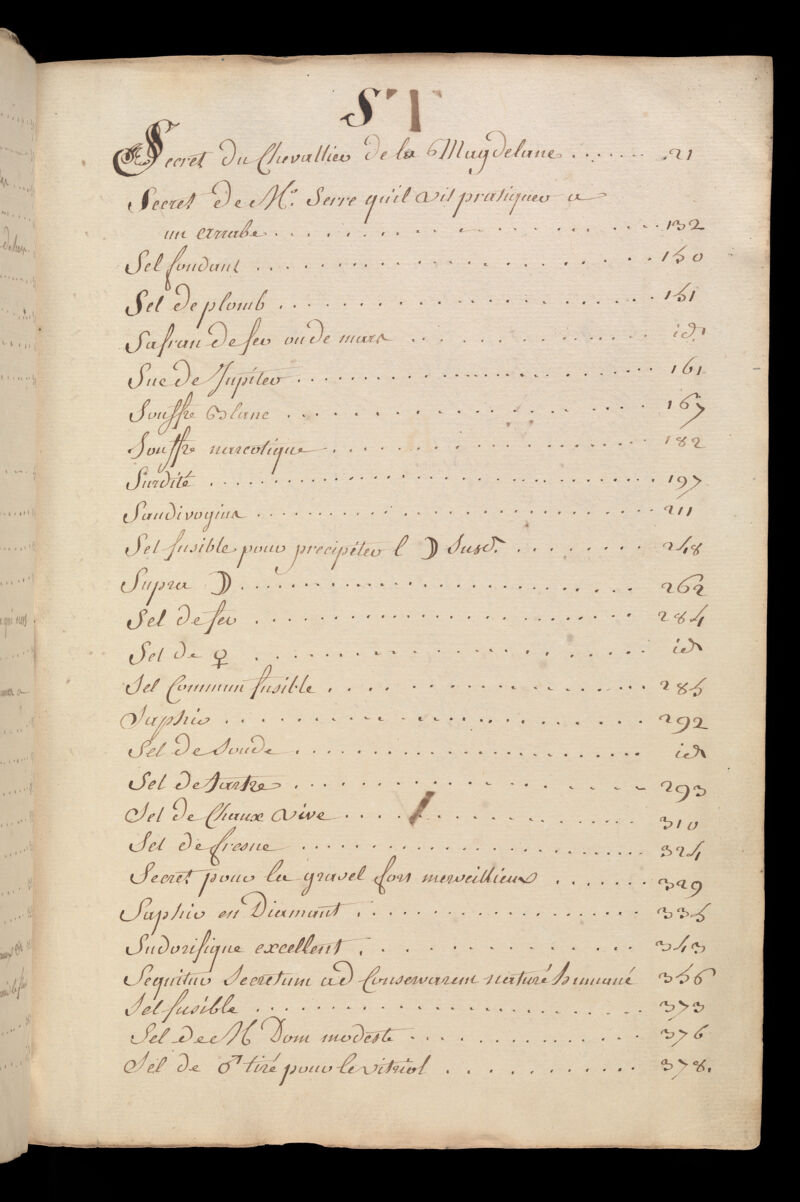 S T
Secret du Chevallier de la Magdelane ....... 21
Secret de Mr. Serre qu'il vit pratiquer a
un arrabe ............ 132
Sel fondant ............ 150
Sel de plomb ............ 151
Safran de fer ou de mars ............ id.
Suc de Jupiter ............ 161
Souffre Blanc ............ 167
Souffre narcotique ............ 182
Surdité ............ 197
Sandivogius ............ 211
Sel fusible pour precipiter l ☽ susd. ........ 248
Supra ☽ ............ 262
Sel de fer ............ 284
Sel de ♀ ............ id
Sel Commun fusible ............ 285
Saphir ............ 292
Sel de Soude ............ id
Sel de tartre ............ 293
Sel de Chaux vive ............ 310
Sel de fresne ............ 324
Secret pour la gravel fors merveillieux ....... 329
Saphir en Diamant ............ 335
Sudorifique excellent ............ 343
Sequitur Secretum ad Conservarem naturé humané 356
Sel fusible ............ 373
Sel de M Dom modeste ............ 376
Sel de ♂ tiré pour le vitriol .......... 378.